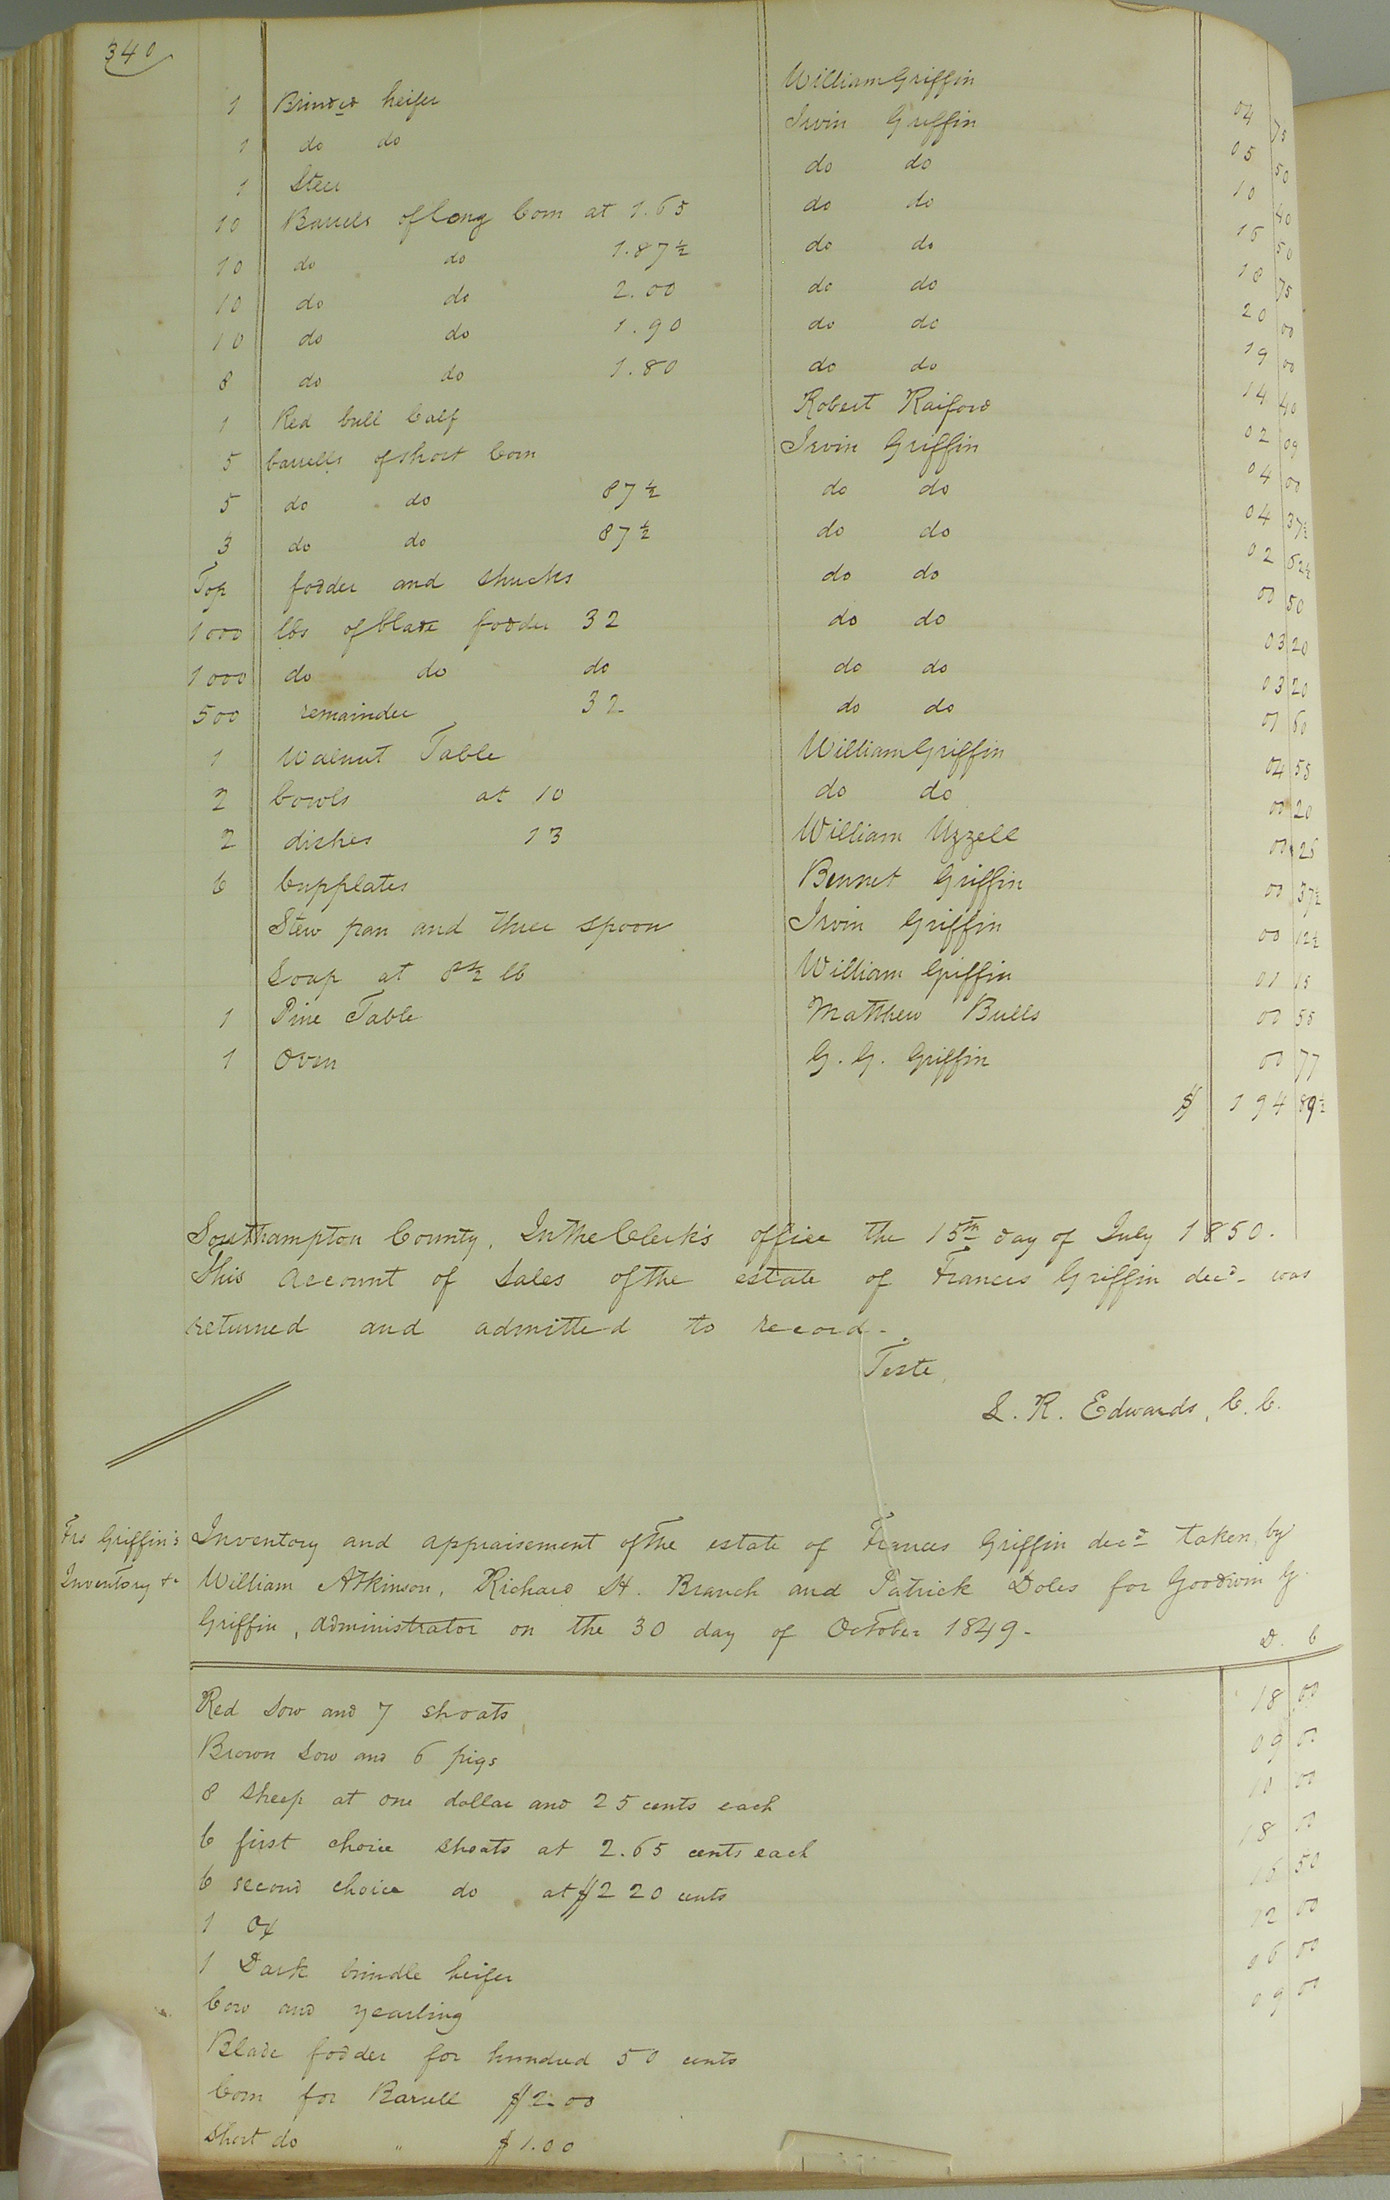 340
1 Brinded heifer William Griffin 04 75
1 do do Irvin Griffin 05 50
1 Steer do do 10 40
10 Barrels of long Corn at 1.65 do do 16 50
10 do do 1.87½ do do 18 75
10 do do 2.00 do do 20 00
10 do do 1.90 do do 19 00
8 do do 1.80 do do 14 40
1 Red bull Calf Robert Raiford 02 09
5 barrells of short Corn Irvin Griffin 04 00
5 do do 87½ do do 04 37½
3 do do 87½ do do 02 62½
Top fodder and shucks do do 00 50
1000 lbs of blade fodder 32 do do 03 20
1000 do do do do do 03 20
500 remainder 32 do do 01 60
1 Walnut Table William Griffin 04 55
2 bowls at 10 do do 00 20
2 dishes 13 William Uzzell 00 26
6 Cupplates Bennet Griffin 00 37½
Stew pan and three spoon Irvin Griffin 00 12½
Soap at 8½ lb William Griffin 01 15
1 Pine Table Matthew Bulls 00 55
1 Oven G. G. Griffin 00 77
$ 194 89½
Southampton County, In the Clerk's office the 15th day of July 1850.
This account of sales of the estate of Frances Griffin decd. was
returned and admitted to record.
Teste,
L. R. Edwards, C. C.
Frs Griffin's Inventory and appraisement of the estate of Frances Griffin decd taken by
Inventory &c William Atkinson, Richard H. Branch and Patrick Doles for Goodwin G.
Griffin, administrator on the 30 day of October 1849.
D. C
Red Sow and 7 shoats 18 00
Brown Sow and 6 pigs 09 00
8 sheep at one dollar and 25 cents each 10 00
6 first choice shoats at 2.65 cents each 18 00
6 second choice do at $2 20 cents 16 50
1 Ox 12 00
1 Dark brindle heifer 06 00
Cow and yearling 09 00
Blade fodder for hundred 50 cents
Corn for Barrell $2.00
Short do " $1.00